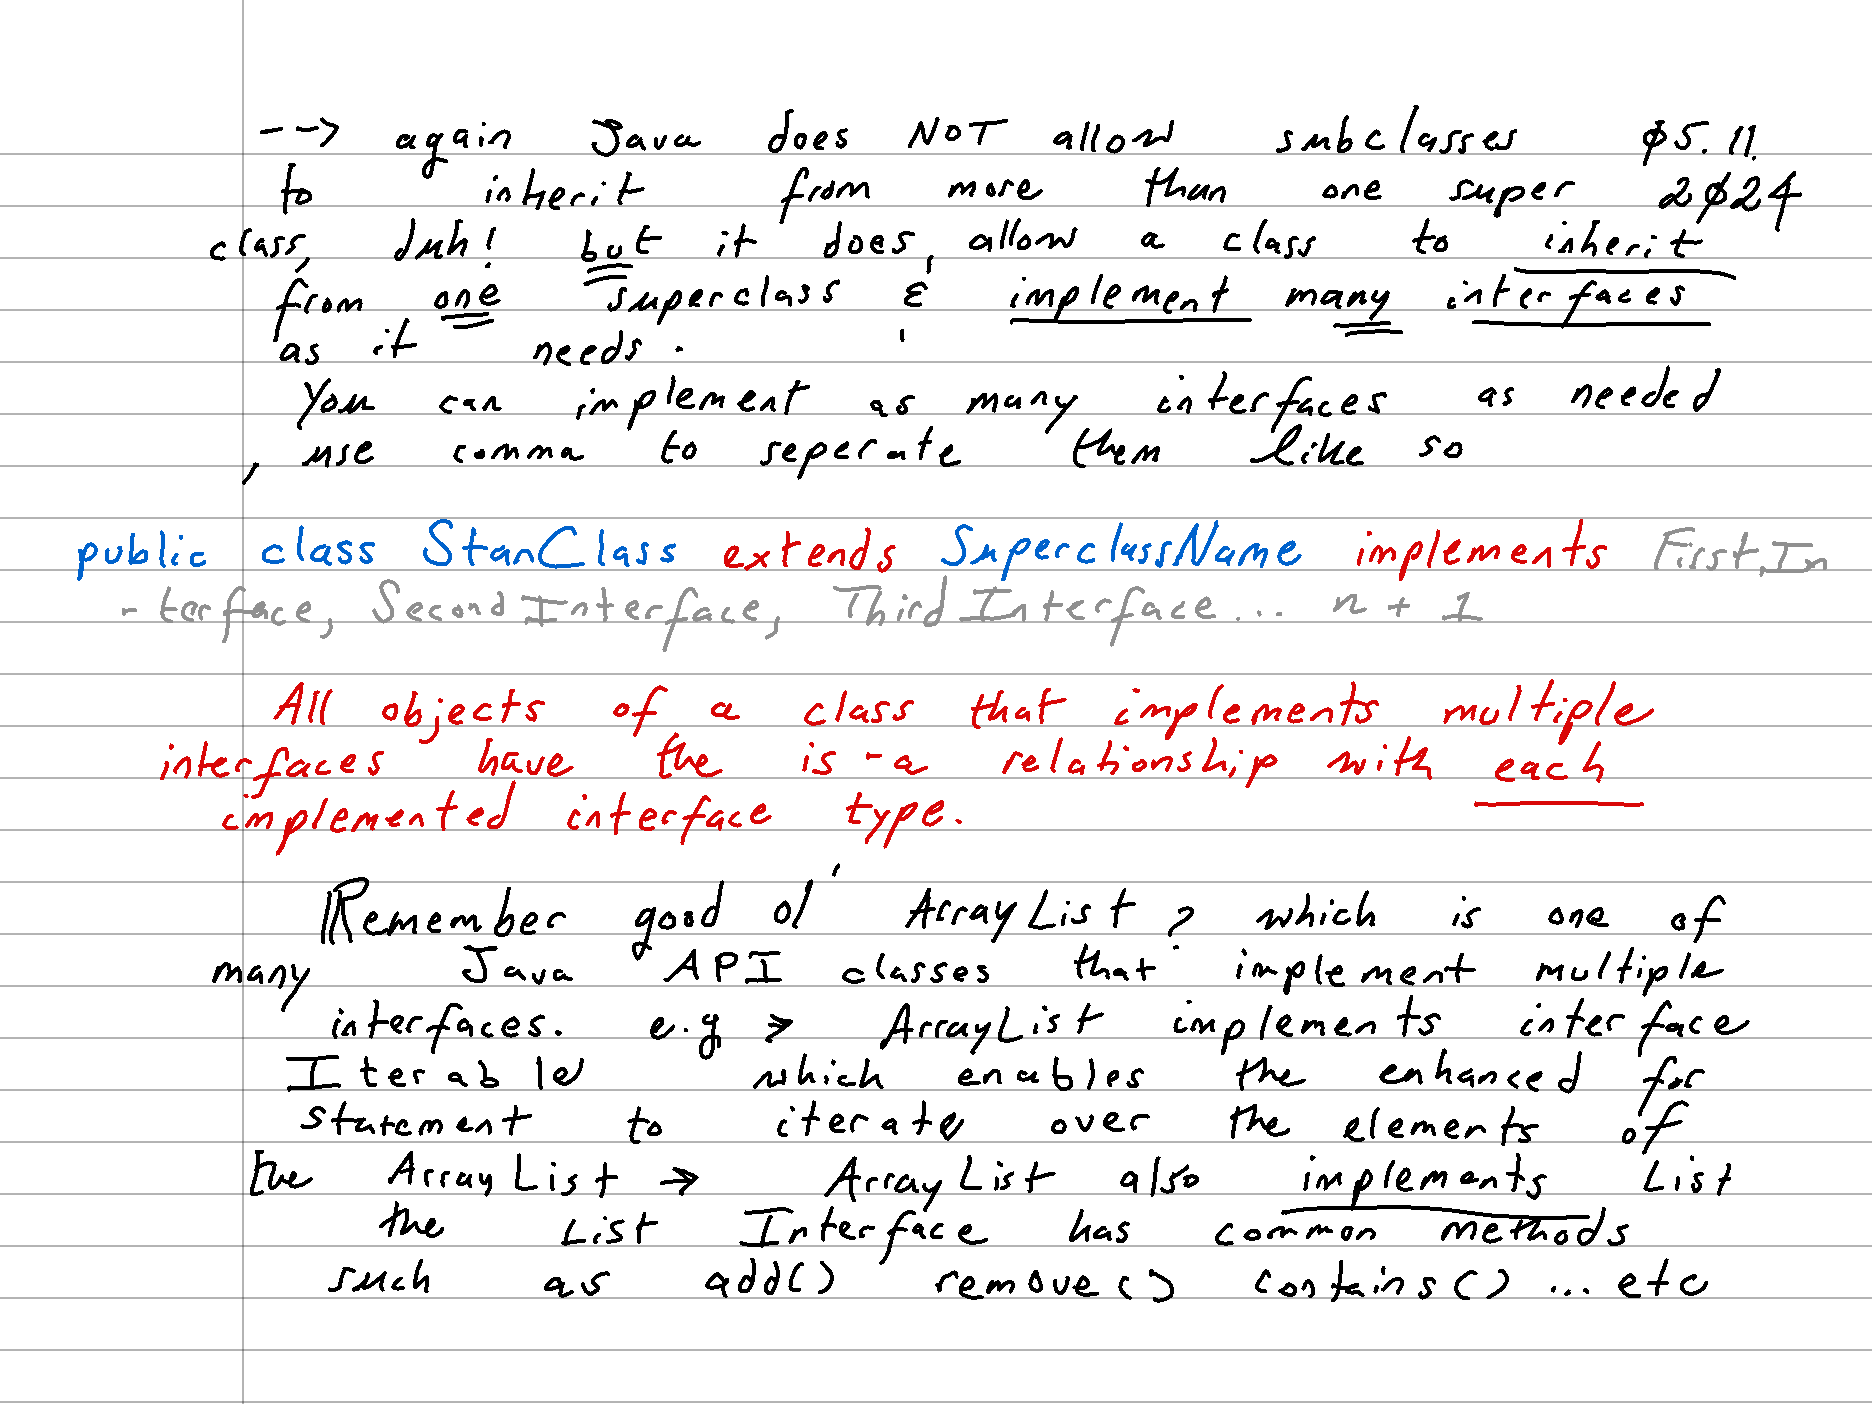 --> again Java does NOT allow subclasses 05.11.
to inherit from more than one super 2024
class, duh! but it does, allow a class to inherit
from one superclass & implement many interfaces
as it needs.
You can implement as many interfaces as needed
, use comma to seperate them like so
public class StanClass extends SuperclassName implements FirstIn
-terface, SecondInterface, ThirdInterface... n + 1
All objects of a class that implements multiple
interfaces have the is-a relationship with each
implemented interface type.
Remember good ol' ArrayList? which is one of
many Java API classes that implement multiple
interfaces. e.g > ArrayList implements interface
Iterable which enables the enhanced for
statement to iterate over the elements of
the ArrayList -> ArrayList also implements List
the List Interface has common methods
such as add() remove() contains() ... etc